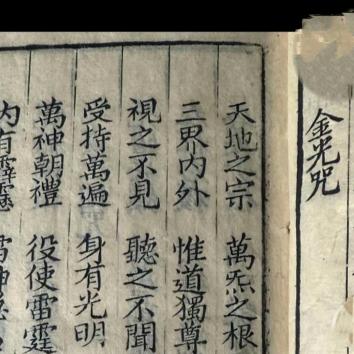 金光咒
天地之宗 萬炁之根
三界内外 惟道獨尊
視之不見 聽之不聞
受持萬遍 身有光明
萬神朝禮 役使雷霆
内有霹靂 雷神